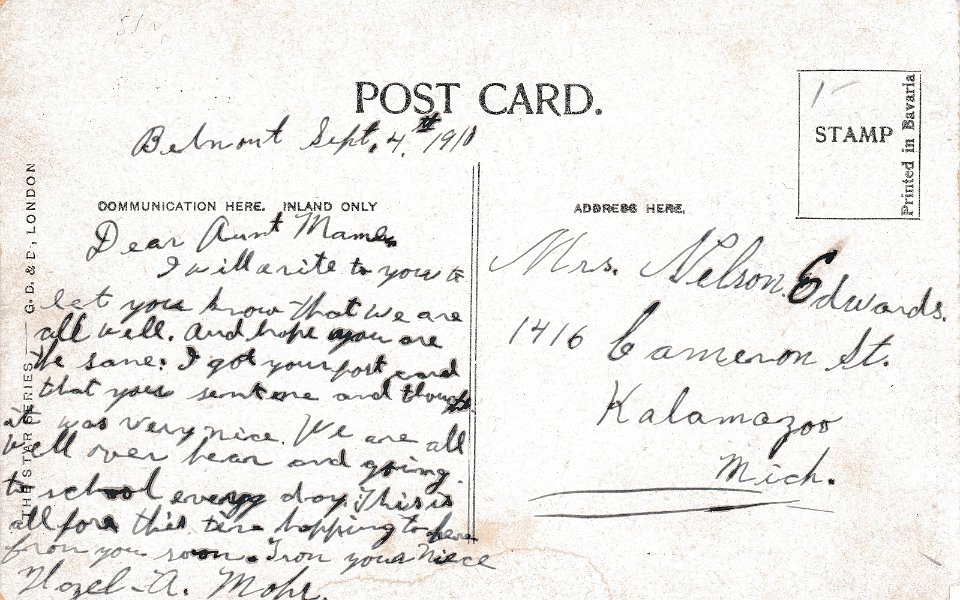 POST CARD.
STAMP
Printed in Bavaria
Belmont Sept. 4.th 1910
COMMUNICATION HERE. INLAND ONLY
ADDRESS HERE.
THE STAR SERIES — G. D. & D., LONDON
Dear Aunt Mame
I will arite to you to
let you know that we are
all well. And hope you are
the same: I got your post card
that you sent me and though
it was very nice. We are all
well over hear and going
to school every day. This is
all fore this time hopping to here
from you soon. From your Niece
Hazel-A. Mohr.
Mrs. Nelson Edwards.
1416 Cameron St.
Kalamazoo
Mich.